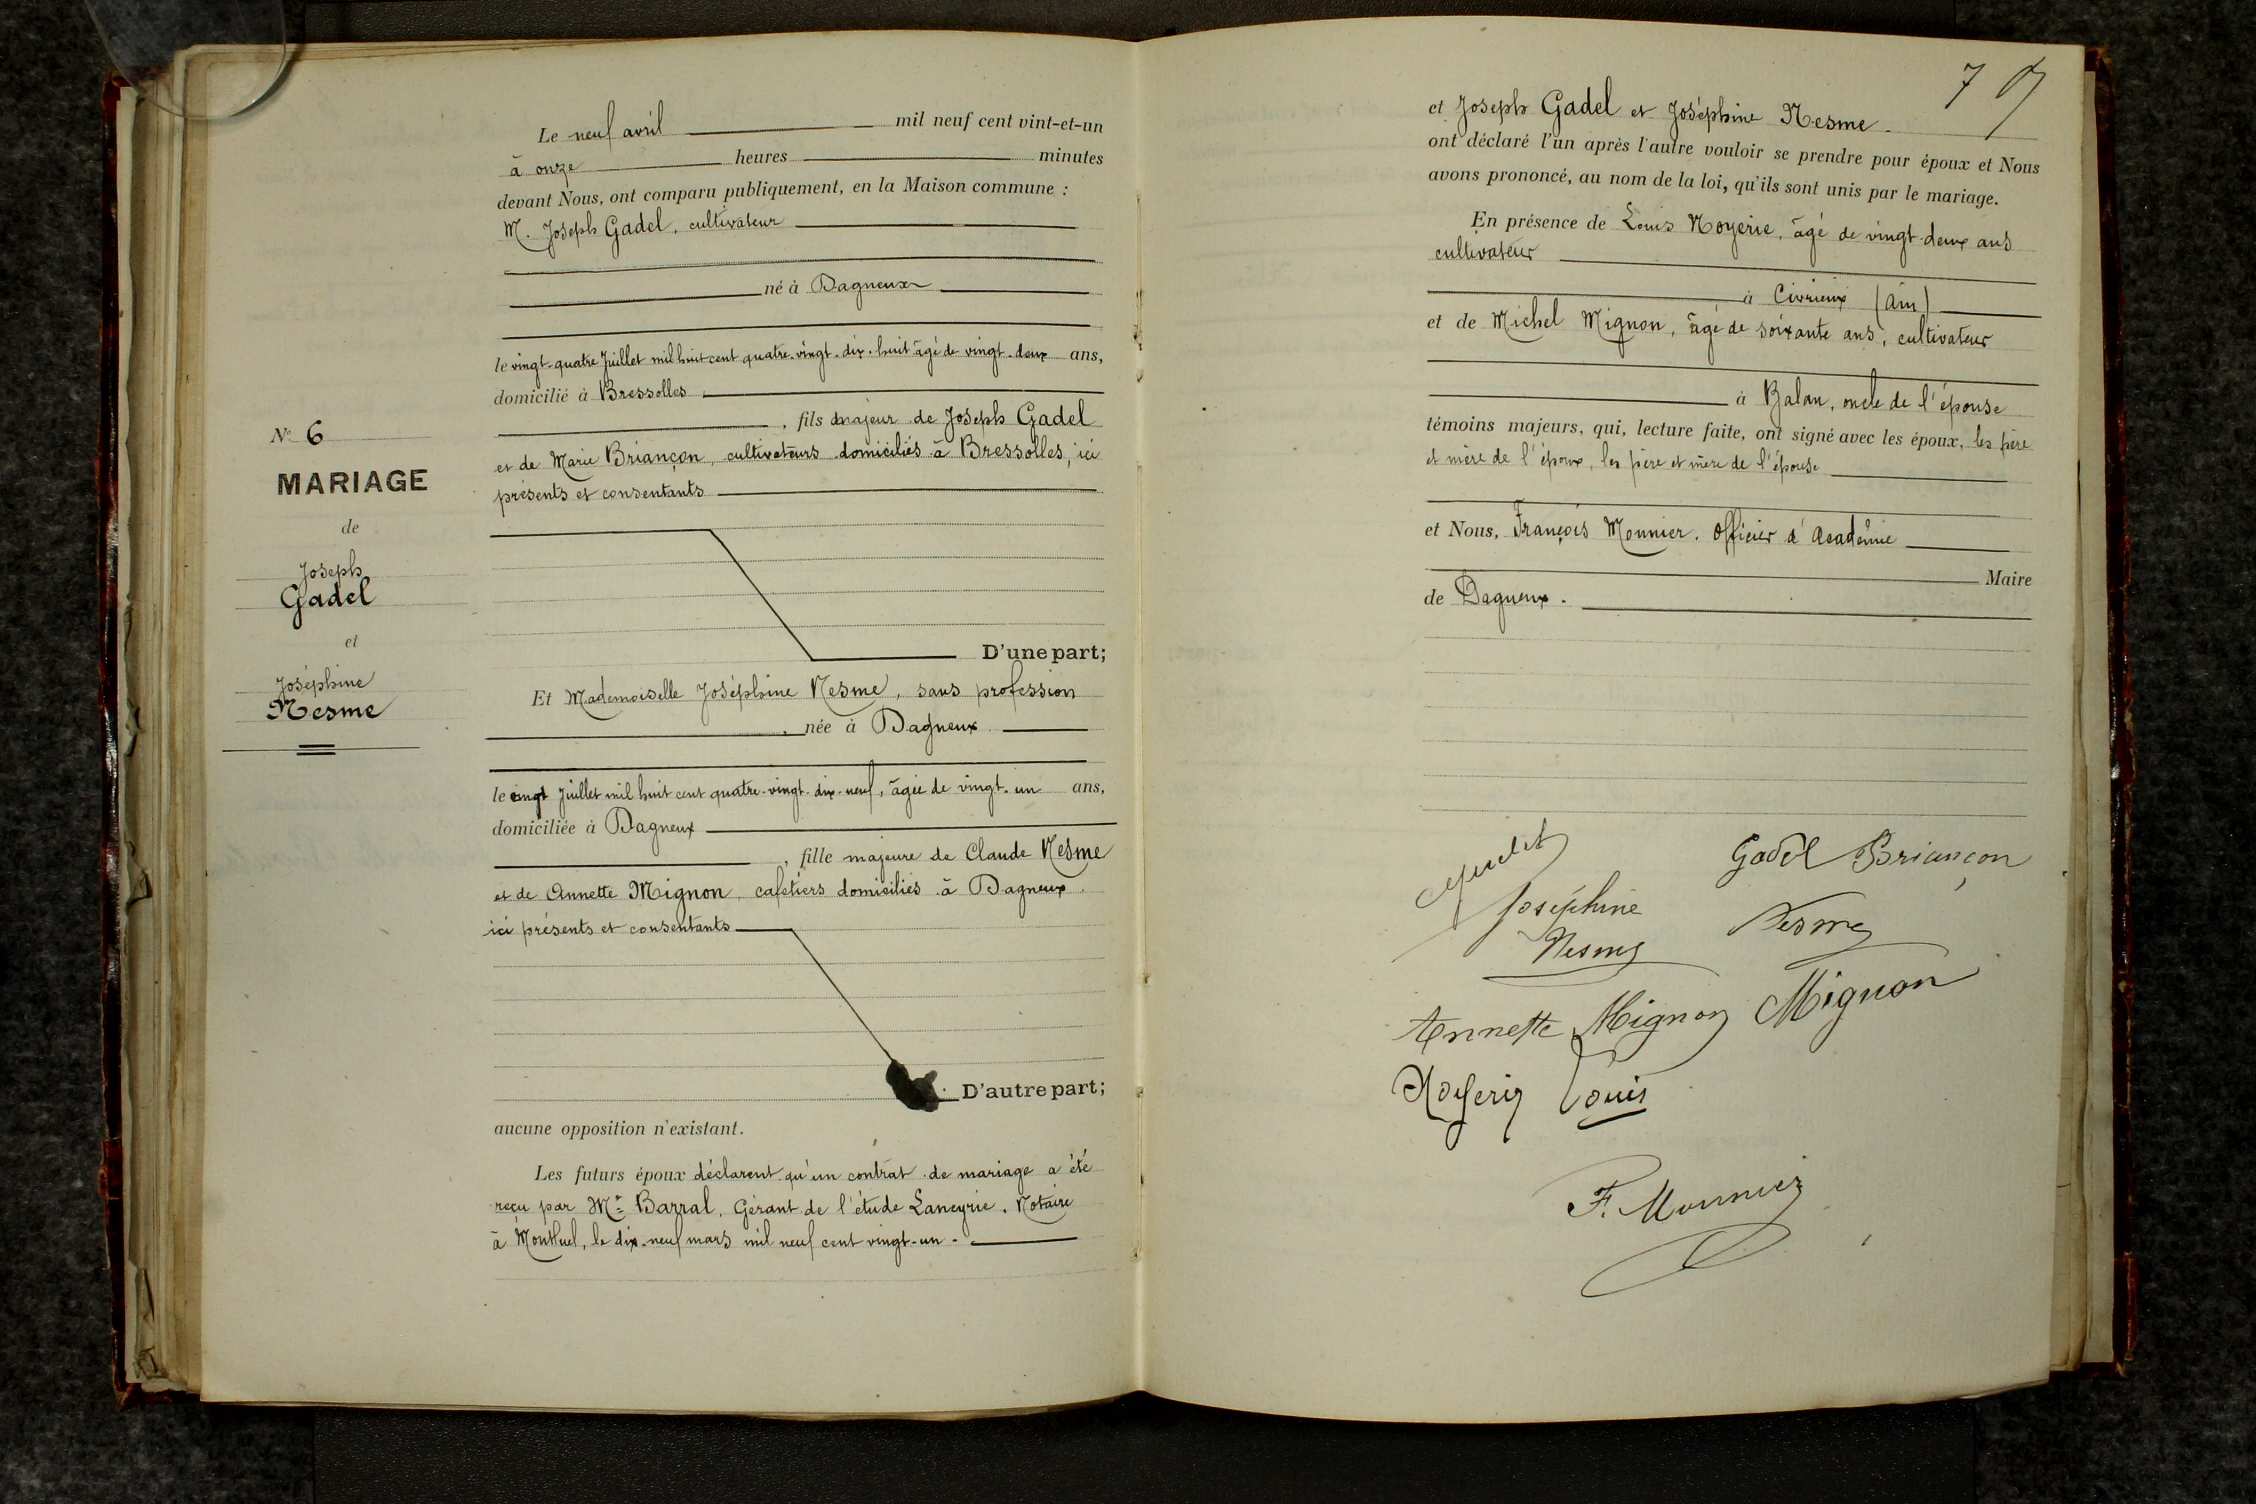 N° 6
MARIAGE
de
Joseph
Gadel
et
Joséphine
Nesme
Le neuf avril mil neuf cent vint-et-un
à onze heures minutes
devant Nous, ont comparu publiquement, en la Maison commune :
M. Joseph Gadel, cultivateur
né à Dagneux
le vingt-quatre Juillet mil huit cent quatre-vingt-dix-huit âgé de vingt-deux ans,
domicilié à Bressolles
, fils majeur de Joseph Gadel
et de Marie Briançon, cultivateurs domiciliés à Bressolles, ici
présents et consentants
D'une part;
Et Mademoiselle Joséphine Nesme, sans profession
, née à Dagneux
le vingt Juillet mil huit cent quatre-vingt-dix-neuf, âgée de vingt-un ans,
domiciliée à Dagneux
, fille majeure de Claude Nesme
et de Annette Mignon, cafetiers domiciliés à Dagneux,
ici présents et consentants
D'autre part;
aucune opposition n'existant.
Les futurs époux déclarent qu'un contrat de mariage a été
reçu par Me Barral, Gérant de l'étude Laneyrie, Notaire
à Montluel, le dix-neuf mars mil neuf cent vingt-un.
7
et Joseph Gadel et Joséphine Nesme.
ont déclaré l'un après l'autre vouloir se prendre pour époux et Nous
avons prononcé, au nom de la loi, qu'ils sont unis par le mariage.
En présence de Louis Noyerie, âgé de vingt-deux ans
cultivateur
à Civrieux (Ain)
et de Michel Mignon, âgé de soixante ans, cultivateur
à Balan, oncle de l'épouse
témoins majeurs, qui, lecture faite, ont signé avec les époux, les père
et mère de l'époux, les père et mère de l'épouse
et Nous, François Monnier, Officier d'Académie
Maire
de Dagneux.
Gadel Briançon
Joséphine
Nesme
Nesme
Annette Mignon Mignon
Noyerie Louis
F. Monnier